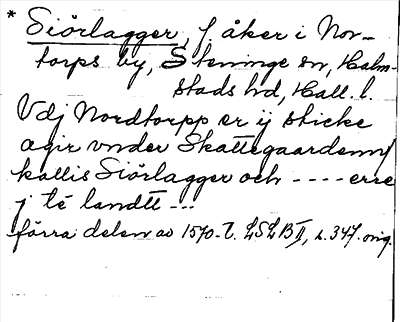 * Siörlagger, f. åker i Nor-
torps by, Steninge sn, Halm-
stads hd, Hall. l.
Vdj Nordtorpp er ij sticke
agir vnder Skattegaardenn
kallis Siörlagger och ----erre
j té landtt ---
förra delen av 1570-t. LSLB II, s. 347. orig.